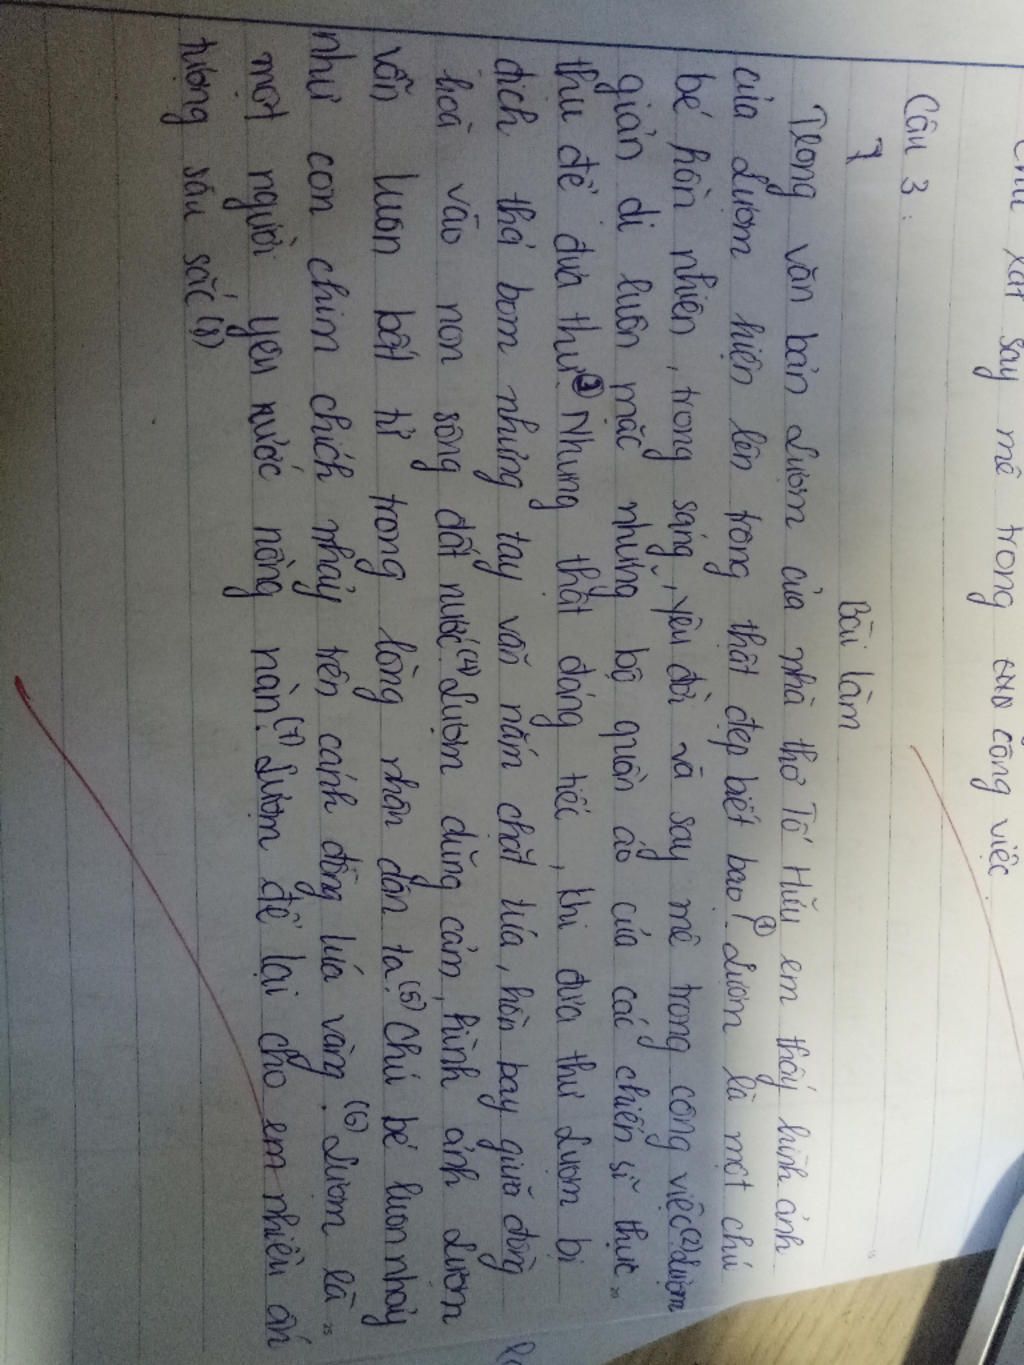 say mê trong công việc
Câu 3:
7
Bài làm
Trong văn bản Lượm của nhà thơ Tố Hữu em thấy hình ảnh
của Lượm hiện lên trong thật đẹp biết bao! (1) Lượm là một chú
bé hồn nhiên, trong sáng, yêu đời và say mê trong công việc (2) Lượm
giản dị luôn mặc những bộ quần áo của các chiến sĩ thực
thụ để đưa thư. (3) Nhưng thật đáng tiếc, khi đưa thư Lượm bị
địch thả bom nhưng tay vẫn nắm chặt lúa, hồn bay giữa đồng
hoà vào non sông đất nước. (4) Lượm dũng cảm, hình ảnh Lượm
vẫn luon bất tử trong lòng nhân dân ta. (5) Chú bé luon nhảy
như con chim chích nhảy trên cánh đồng lúa vàng. (6) Lượm là
một người yêu nước nồng nàn. (7) Lượm để lại cho em nhiều ấn
tượng sâu sắc (8)